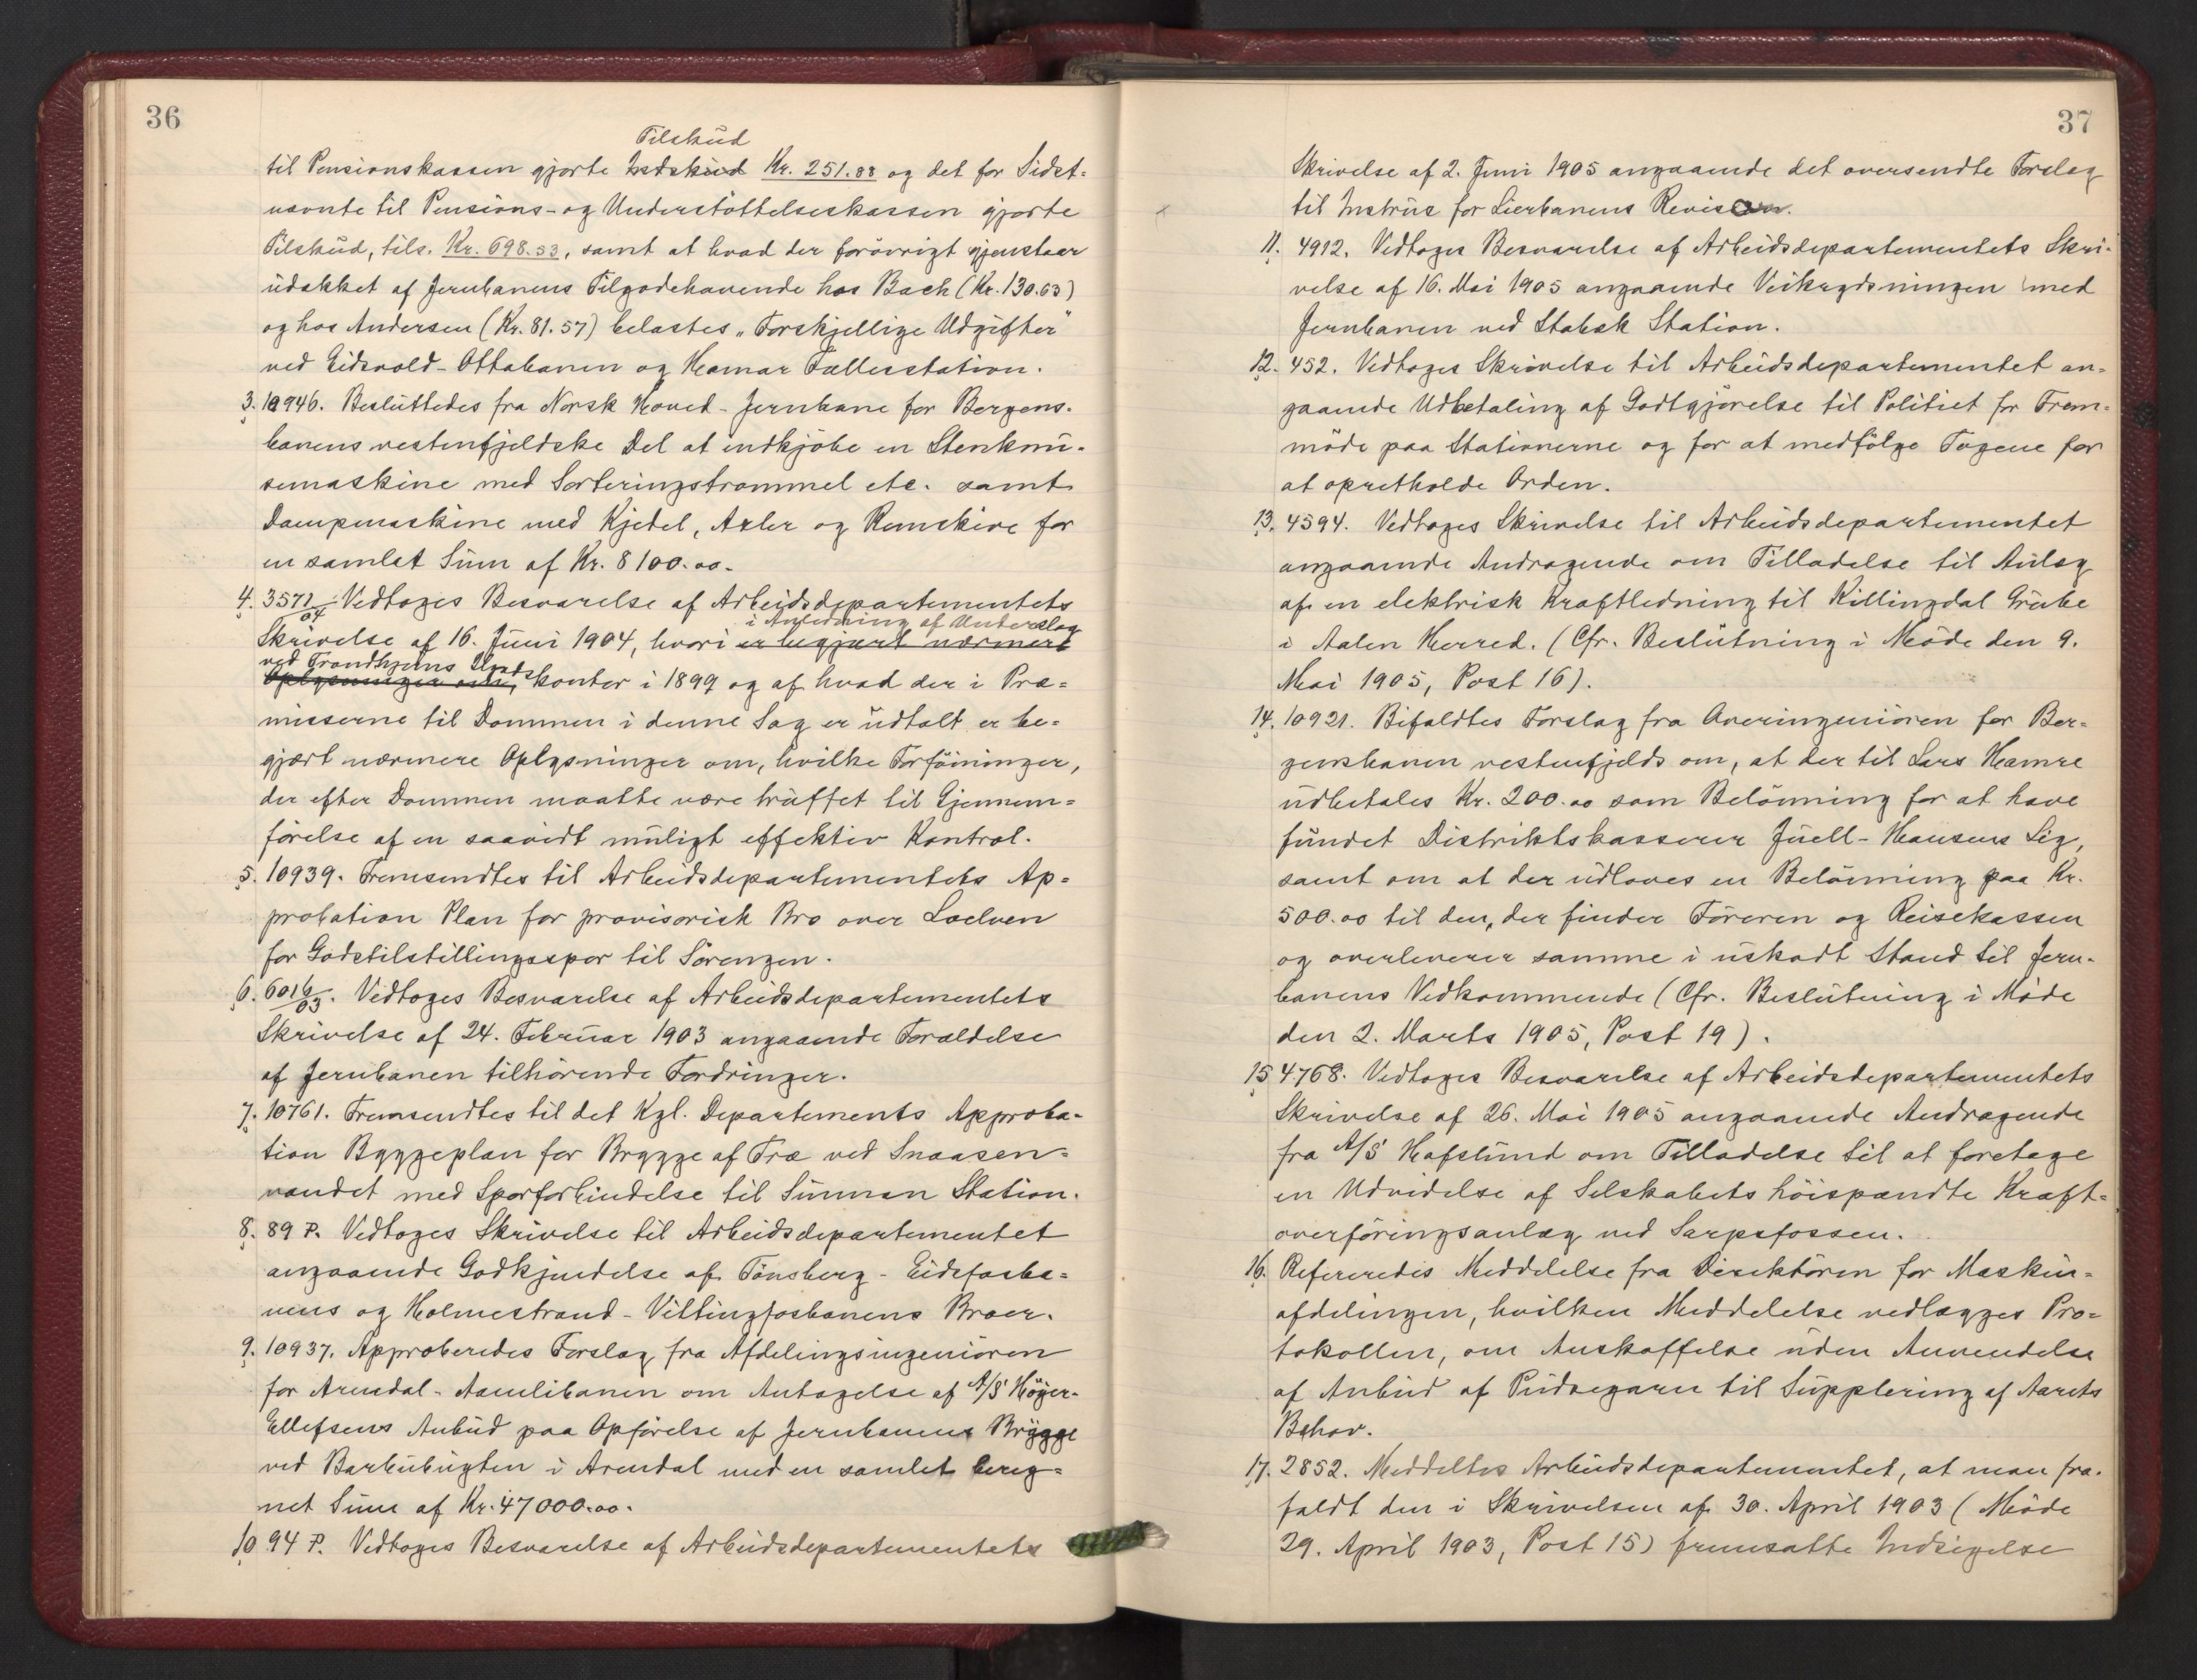 36
Tilskud
til Pensionskassen gjorte Indskud Kr. 251.88 og det for Sidst-
nævnte til Pensions- og Understöttelseskassen gjorte
Tilskud, tils. Kr. 698.53, samt at hvad der forövrigt gjenstaar
udækket af Jernbanens Tilgodehavende hos Bach (Kr. 130.63)
og hos Andersen (Kr. 81.57) belastes „Forskjellige Udgifter"
ved Eidsvold-Ottabanen og Hamar Fællesstation.
3. 10946. Besluttedes fra Norsk Hoved-Jernbane for Bergens-
banens vestenfjeldske Del at indkjöbe en Stenknu-
semaskine med Sorteringstrommel etc. samt
Dampmaskine med Kjedel, Axler og Remskive for
en samlet Sum af Kr. 8100.00.
4. 3571/04 Vedtoges Besvarelse af Arbeidsdepartementets
i Anledning af Underslag
Skrivelse af 16. Juni 1904, hvori er begjært nærmere
ved Trondhjems
Oplysninger om, kontor i 1899 og af hvad der i Præ-
misserne til Dommen i denne Sag er udtalt er be-
gjært nærmere Oplysninger om, hvilke Forföininger,
der efter Dommen maatte være truffet til Gjennem-
förelse af en saavidt muligt effektiv Kontrol.
5. 10939. Fremsendtes til Arbeidsdepartementets Ap-
probation Plan for provisorisk Bro over Loelven
for Godstilstillingsspor til Sörengen.
6. 6016/03. Vedtoges Besvarelse af Arbeidsdepartementets
Skrivelse af 24. Februar 1903 angaaende Forældelse
af Jernbanen tilhörende Fordringer.
7. 10761. Fremsendtes til det Kgl. Departements Approba-
tion Byggeplan for Brygge af Træ ved Snaasen-
vandet med Sporforbindelse til Sunnan Station.
8. 89 P. Vedtoges Skrivelse til Arbeidsdepartementet
angaaende Godkjendelse af Tönsberg-Eidsfosba-
nens og Holmestrand-Vittingfosbanens Broer.
9. 10937. Approberedes Forslag fra Afdelingsingeniören
for Arendal-Aamlibanen om Antagelse af A/S Höyer-
Ellefsens Anbud paa Opförelse af Jernbanens Brygge
ved Barbubugten i Arendal med en samlet bereg-
net Sum af Kr. 47000.00.
10 94 P. Vedtoges Besvarelse af Arbeidsdepartementets
37
Skrivelse af 2. Juni 1905 angaaende det oversendte Forslag
til Instrux for Lierbanens Revision.
11. 4912. Vedtoges Besvarelse af Arbeidsdepartementets Skri-
velse af 16. Mai 1905 angaaende Veikrydsningen med
Jernbanen ved Stabæk Station.
12. 452. Vedtoges Skrivelse til Arbeidsdepartementet an-
gaaende Udbetaling af Godtgjörelse til Politiet for Frem-
möde paa Stationerne og for at medfölge Togene for
at opretholde Orden.
13. 4594. Vedtoges Skrivelse til Arbeidsdepartementet
angaaende Andragende om Tilladelse til Anlæg
af en elektrisk Kraftledning til Killingdal Grube
i Aalen Herred. (Cfr. Beslutning i Möde den 9.
Mai 1905, Post 16).
14. 10921. Bifaldtes Forslag fra Overingeniören for Ber-
gensbanen vestenfjelds om, at der til Lars Hamre
udbetales Kr. 200.00 som Belönning for at have
fundet Distriktskasserer Juell-Hansens Lig,
samt om at der udloves en Belönning paa Kr.
500.00 til den, der finder Föreren og Reisekassen
og overleverer samme i uskadt Stand til Jern-
banens Vedkommende (Cfr. Beslutning i Möde
den 2. Marts 1905, Post 19).
15 4768. Vedtoges Besvarelse af Arbeidsdepartementets
Skrivelse af 26. Mai 1905 angaaende Andragende
fra A/S Hafslund om Tilladelse til at foretage
en Udvidelse af Selskabets höispændte Kraft-
overföringsanlæg ved Sarpsfossen.
16. Refereredes Meddelelse fra Direktören for Maskin-
afdelingen, hvilken Meddelelse vedlægges Pro-
tokollen, om Anskaffelse uden Anvendelse
af Anbud af Pudsegarn til Supplering af Aarets
Behov.
17. 2852. Meddeltes Arbeidsdepartementet, at man fra-
faldt den i Skrivelsen af 30. April 1903 (Möde
29. April 1903, Post 15) fremsatte Indsigelse